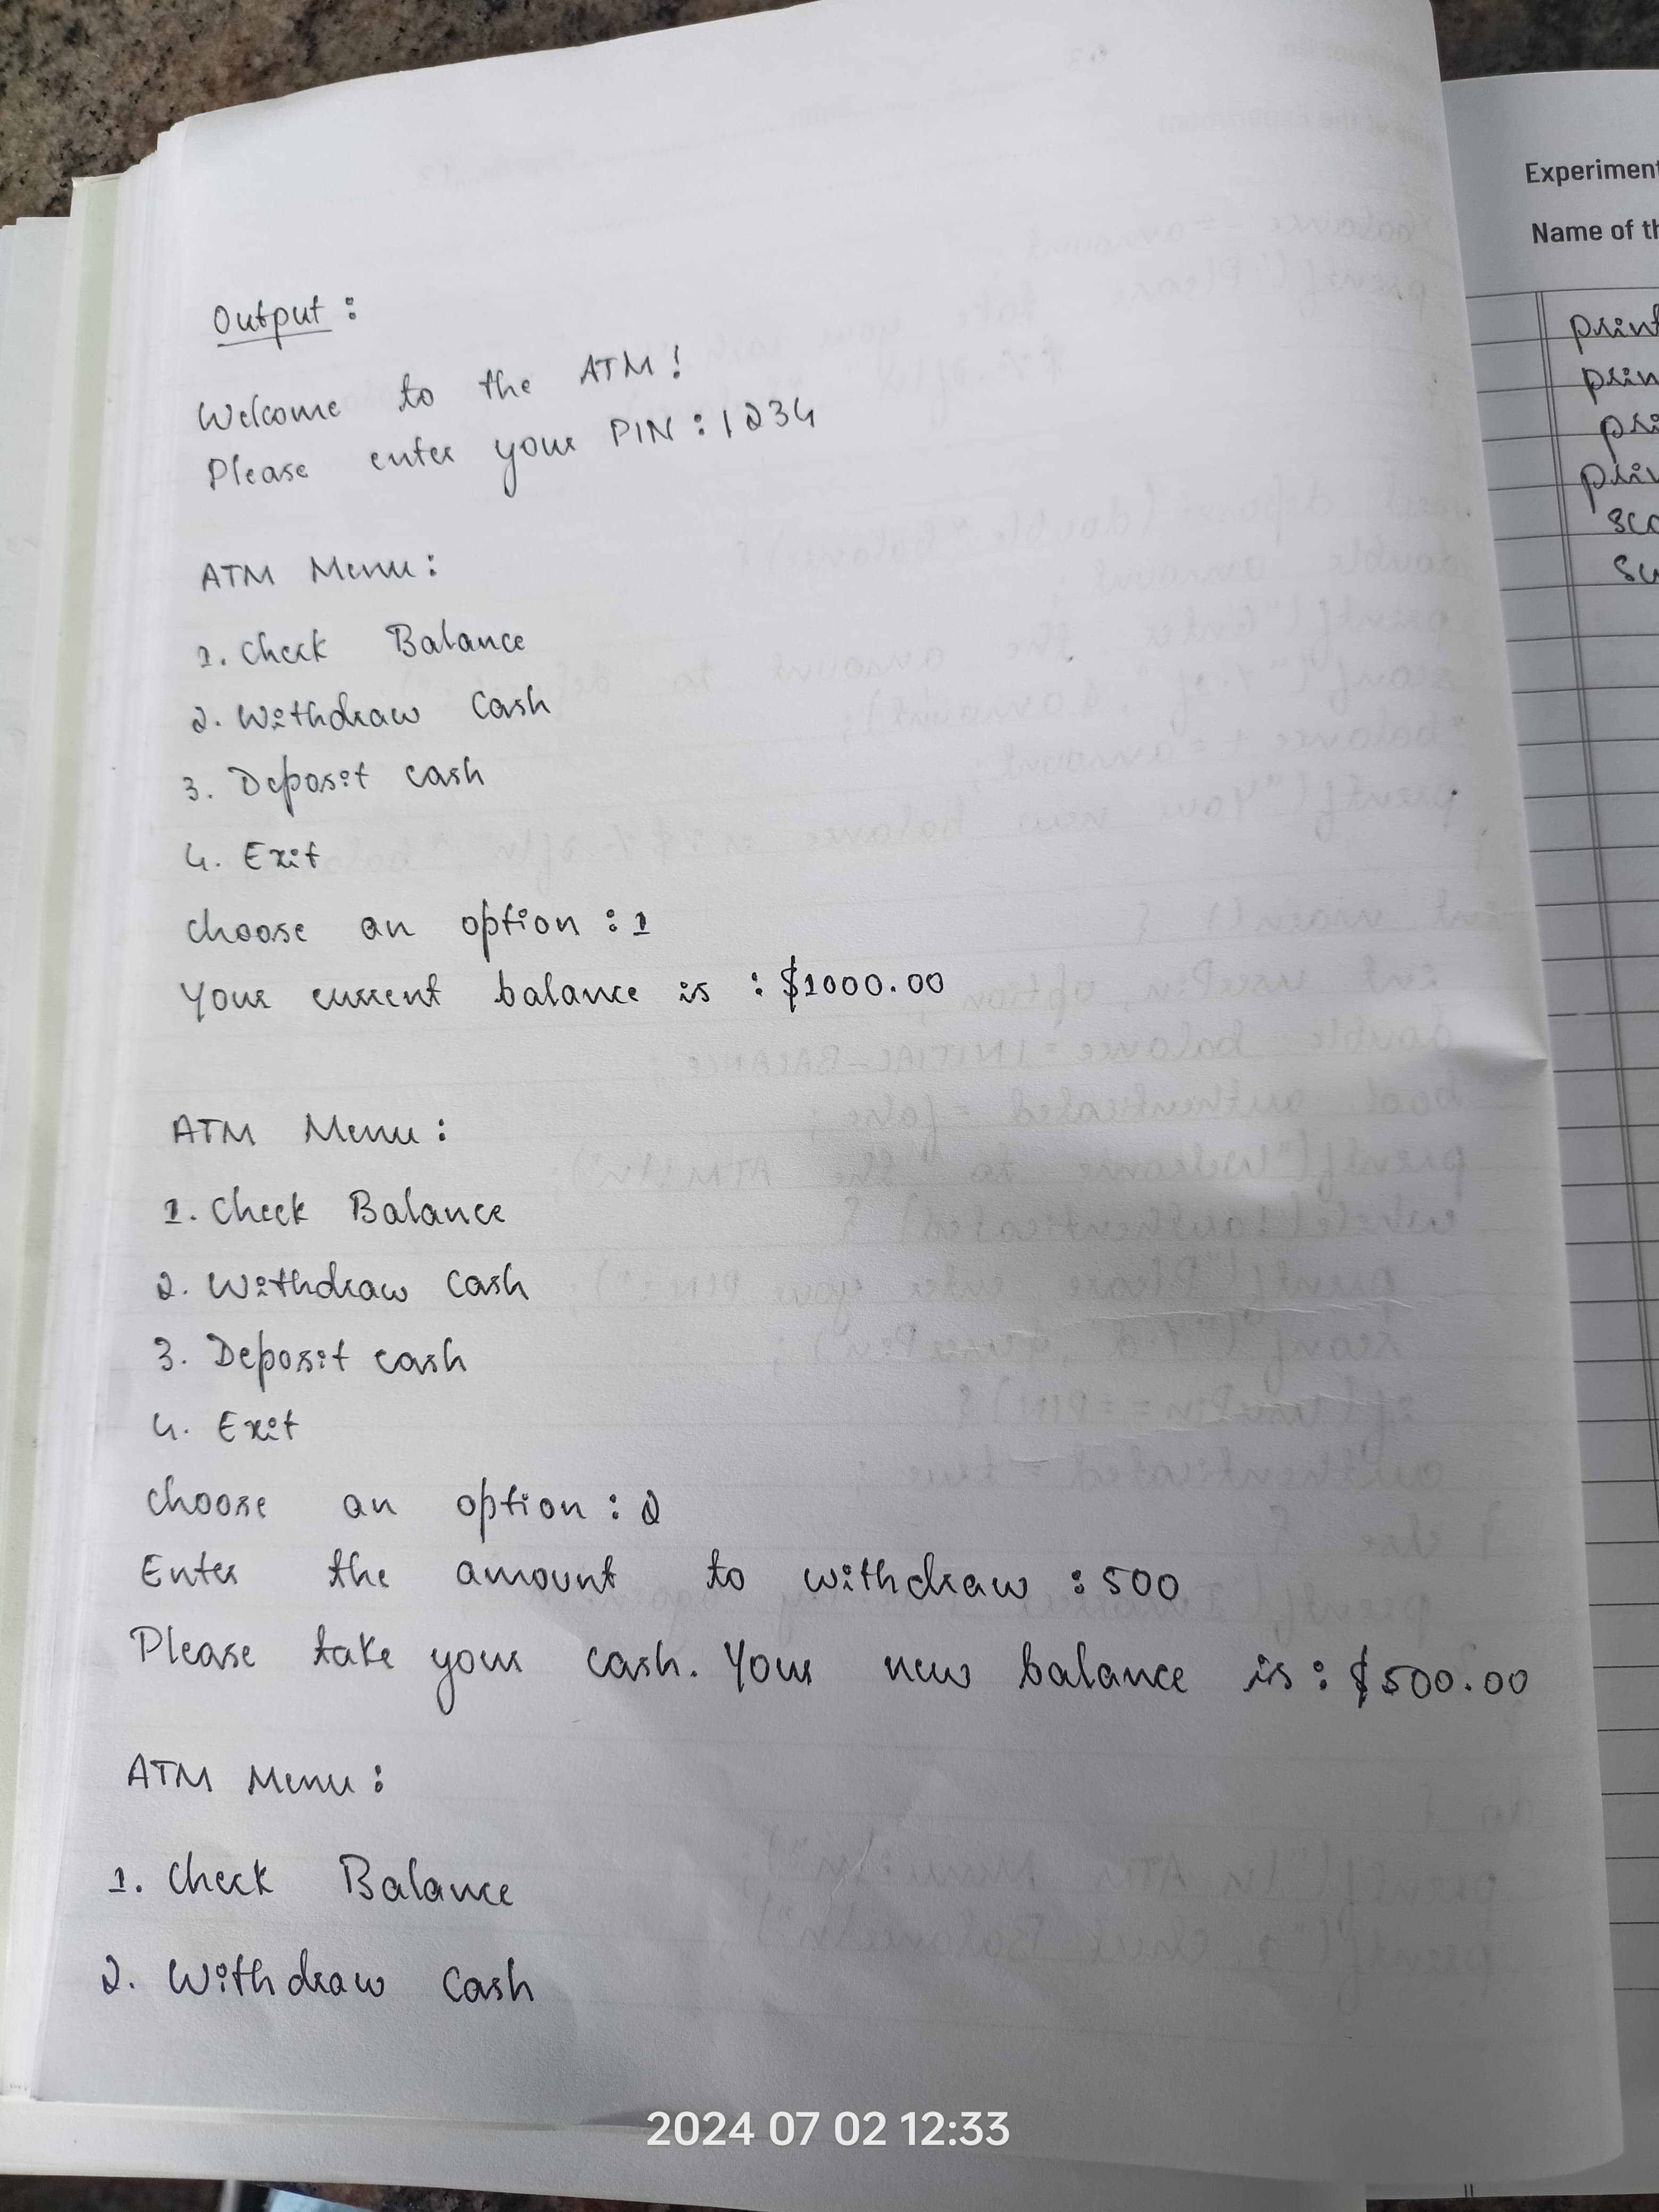 Output :
Welcome to the ATM!
Please enter your PIN : 1234
ATM Menu :
1. Check Balance
2. Withdraw Cash
3. Deposit cash
4. Exit
choose an option : 1
Your current balance is : $1000.00
ATM Menu :
1. Check Balance
2. Withdraw Cash
3. Deposit cash
4. Exit
choose an option : 2
Enter the amount to withdraw : 500
Please take your cash. Your new balance is : $500.00
ATM Menu :
1. Check Balance
2. Withdraw Cash
Experiment
Name of th
2024 07 02 12:33